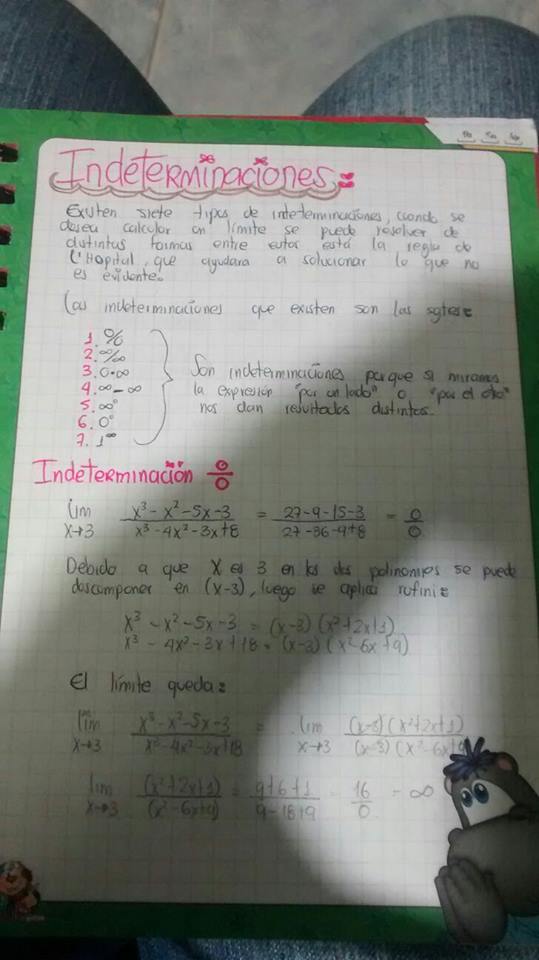 Indeterminaciones:
Existen siete tipos de indeterminaciones, cuando se
desea calcular un límite se puede resolver de
distintas formas entre estas está la regla de
L'Hopital, que ayudara a solucionar lo que no
es evidente.
Las indeterminaciones que existen son las sgtes:
1. 0/0
2. ∞/∞
3. 0·∞
4. ∞-∞
5. ∞⁰
6. 0⁰
7. 1^∞
Son indeterminaciones porque si miramos
la expresión "por un lado" o "por el otro"
nos dan resultados distintos.
Indeterminación 0/0
lim x→3 (x³-x²-5x-3)/(x³-4x²-3x+8) = (27-9-15-3)/(27-36-9+8) = 0/0
Debido a que X es 3 en los dos polinomios se puede
descomponer en (x-3), luego se aplica rufini:
x³-x²-5x-3 = (x-3)(x²+2x+1)
x³-4x²-3x+18 = (x-3)(x²-6x+9)
El límite queda:
lim x→3 (x³-x²-5x-3)/(x³-4x²-3x+18) = lim x→3 (x-3)(x²+2x+1)/(x-3)(x²-6x+9
lim x→3 (x²+2x+1)/(x²-6x+9) = (9+6+1)/(9-18+9) = 16/0 = ∞